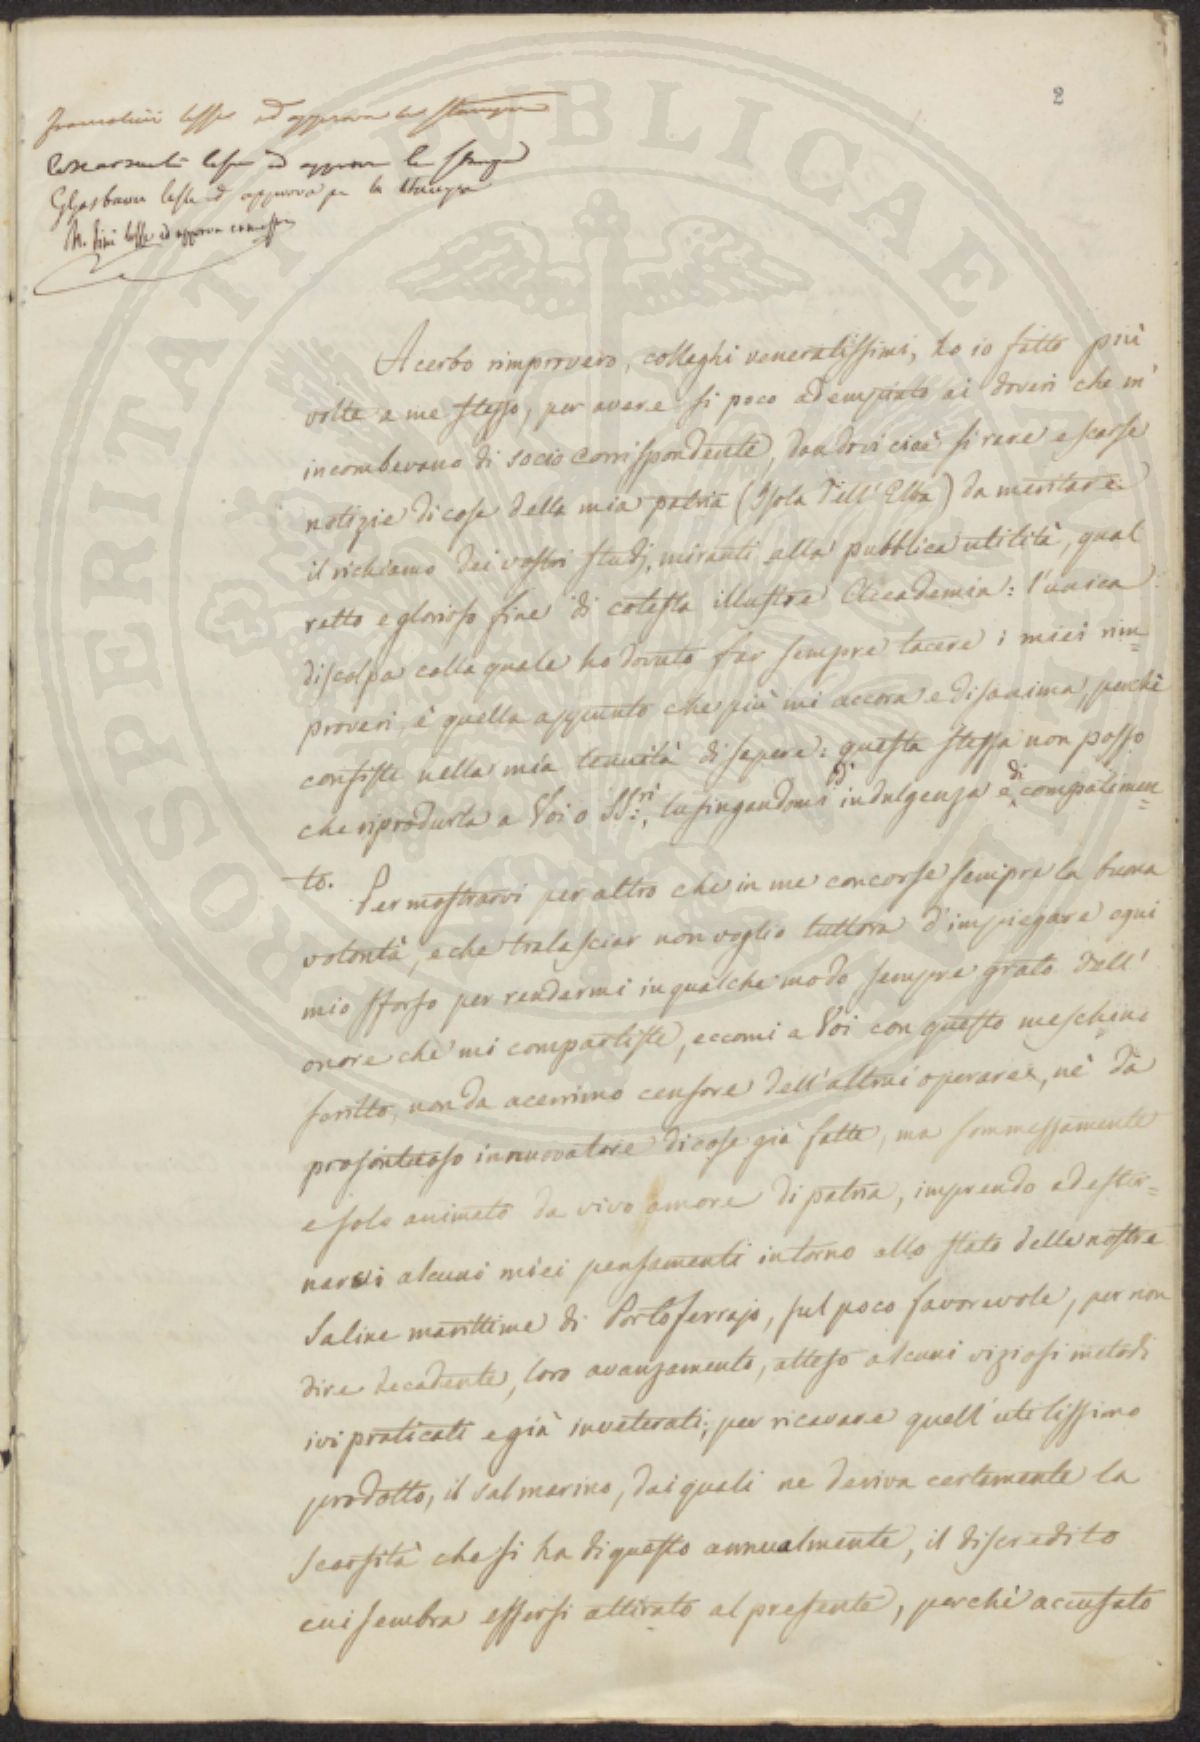 2
lesse ed approva la stampa
lesse ed approva la stampa
lesse ed approva per la stampa
lesse ed approva
Acerbo rimprovero, colleghi veneratissimi, ho io fatto più
volte a me stesso, per avere sì poco adempiuto ai doveri che m'
incombevano di socio corrispondente, dandovi cioè sì rare e scarse
notizie di cose della mia patria (Isola dell'Elba) da meritare
il richiamo dei vostri studj, miranti alla pubblica utilità, qual
retto e glorioso fine di cotesta illustre Accademia: l'unica
discolpa colla quale ho dovuto far sempre tacere i miei rim=
proveri, è quella appunto che più mi accora e disanima, perchè
consiste nella mia tenuità di sapere: questa stessa non posso
che riprodurla a Voi o SS:ri, lusingandomi d' indulgenza e di compatimen=
to.
Per mostrarvi per altro che in me concorse sempre la buona
volontà, e che tralasciar non voglio tuttora d'impiegare ogni
mio sforso per rendermi in qualche modo sempre grato dell'
onore che mi compartiste, eccomi a Voi con questo meschino
scritto, non da acerrimo censore dell'altrui operare, nè da
prosontuoso innuovatore di cose già fatte, ma sommessamente
e solo animato da vivo amore di patria, imprendo ad ester=
narvi alcuni miei pensamenti intorno allo stato delle nostre
Saline marittime di Portoferrajo, sul poco favorevole, per non
dire decadente, loro avanzamento, atteso alcuni viziosi metodi
ivi praticati e già inveterati, per ricavare quell'utilissimo
prodotto, il sal marino, dai quali ne deriva certamente la
scarsità che si ha di questo annualmente, il discredito
cui sembra essersi attirato al presente, perchè accusato
PROSPERITATI PVBLICAE